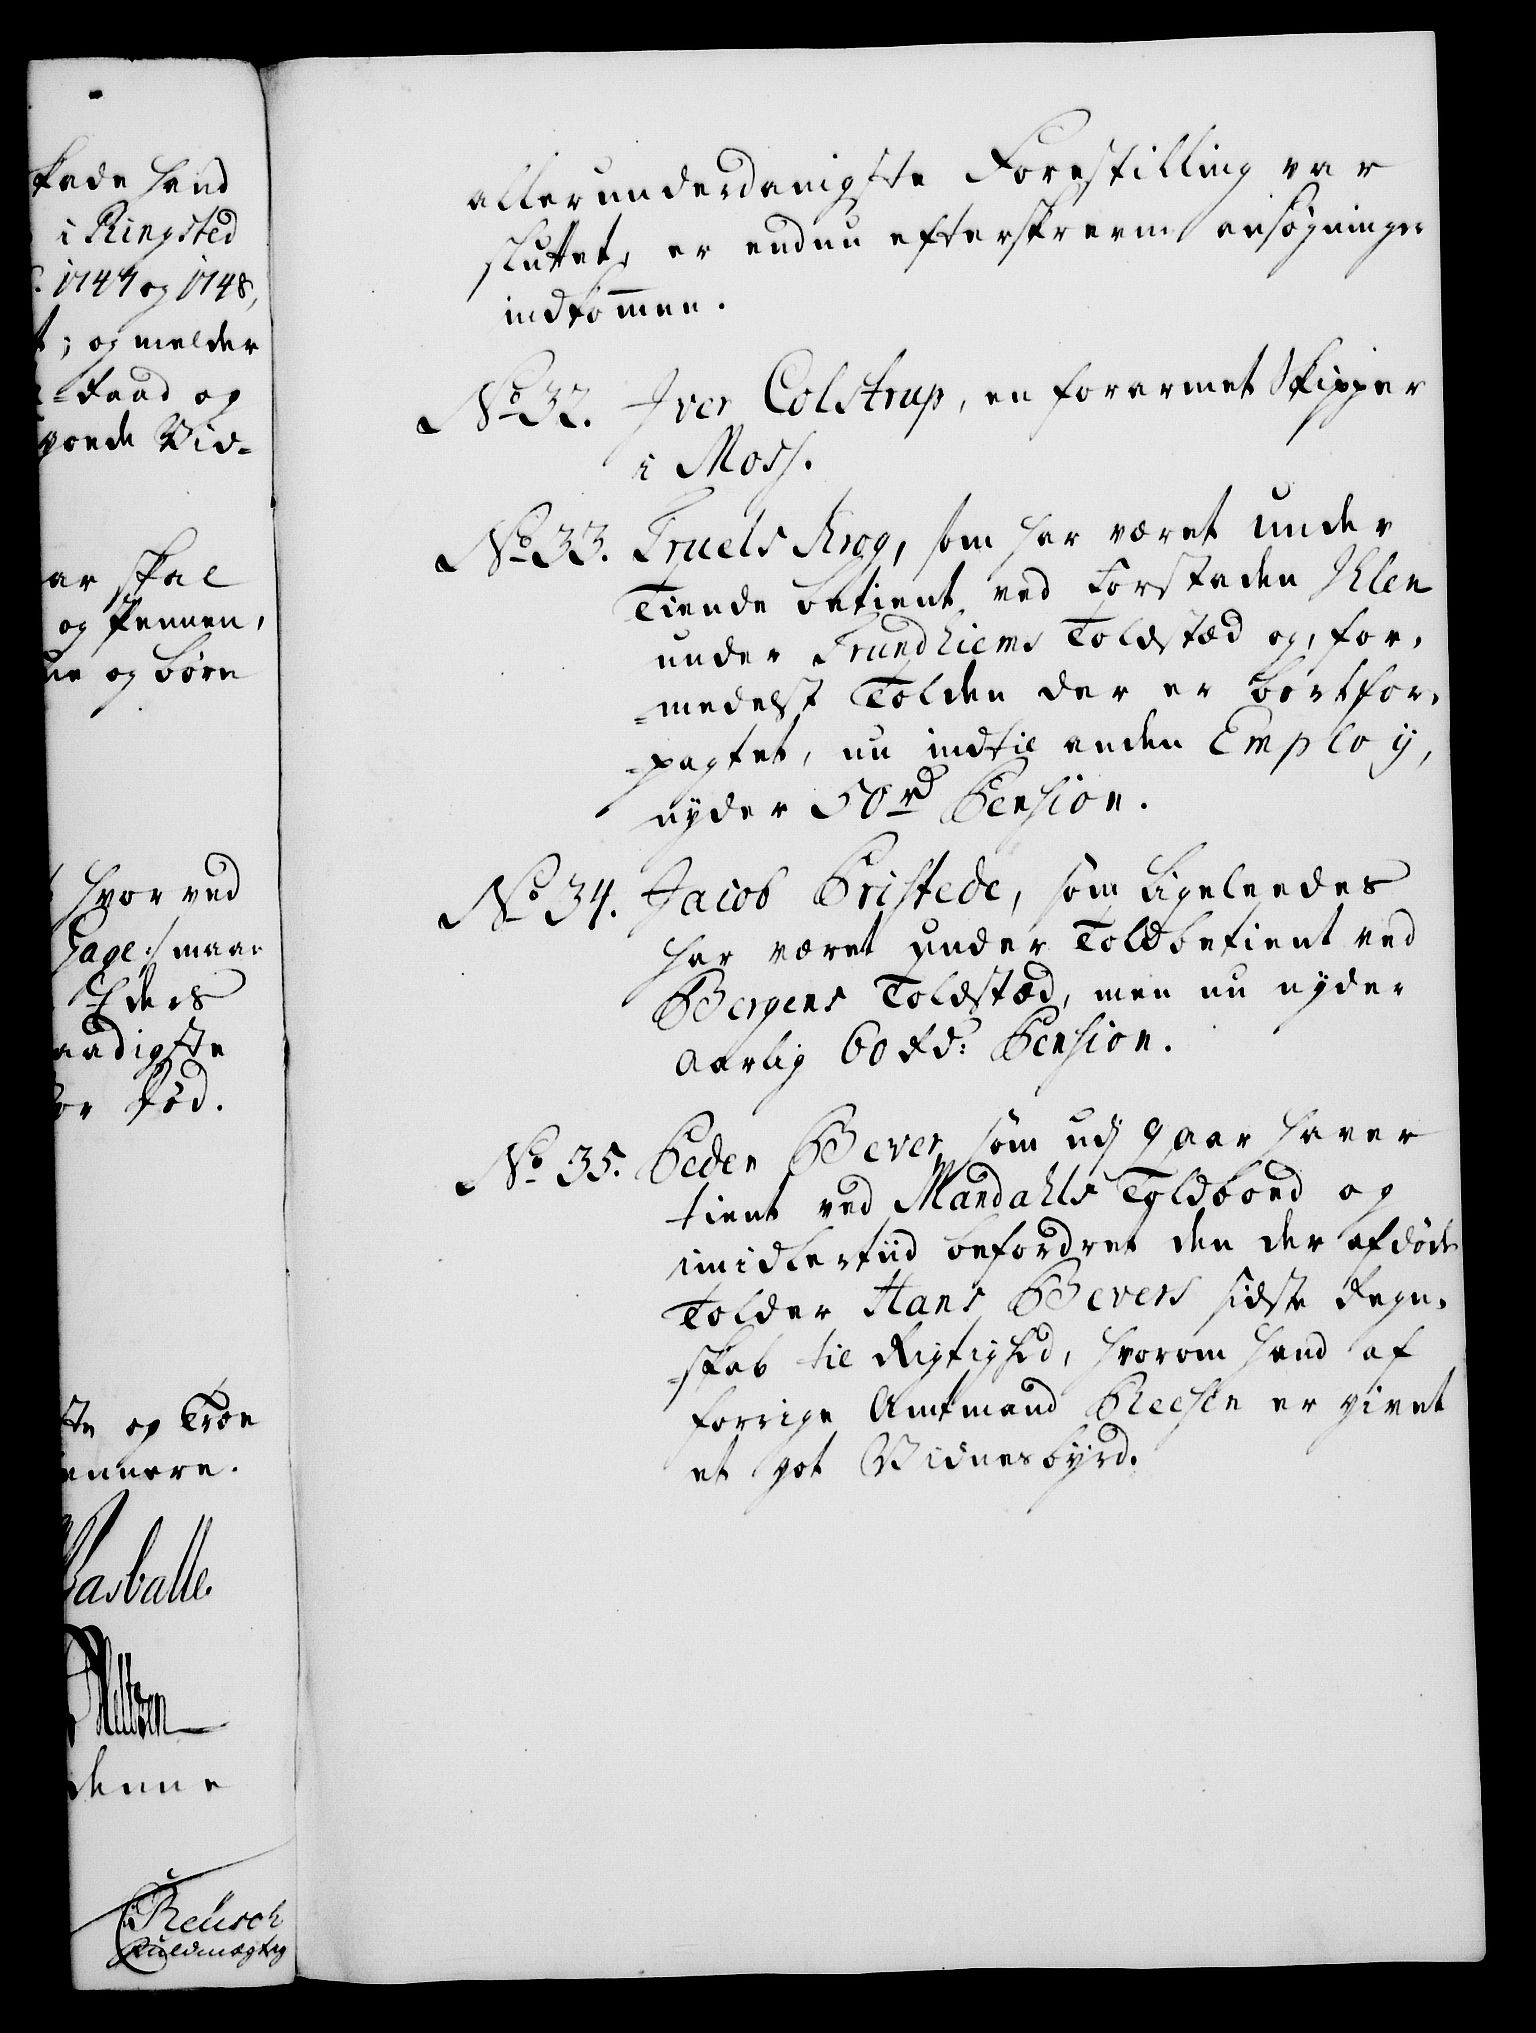 kade hand
i Ringsted
1747 og 1748,
t; og melder
Raad og
goede Vid-
ar skal
og Pennen,
ne og børn
hvorved
Gage :/ maa-
Eders
aadigste
or Død.
og Troe
ennere.
denne
Reusch
Fuldmægtig
allerunderdanigste Forestilling var
sluttet, er endnu efterskrevne ansøgninger
indkommen.
No 32. Iver Colstrup, en forarmet Skipper
i Moss.
No 33. Truels Krog, som har været under
Tiende betient ved Forstaden Ihlen
under Trundhiems Toldstæd og, for-
-medelst Tolden der er bortfor-
-pagtet, nu indtil anden Employ,
nyder 50 rd Pension.
No 34. Jacob Pristede, som ligeleedes
har været under Toldbetient ved
Bergens Toldstæd, men nu nyder
Aarlig 60 Rd: Pension.
No 35. Peder Bever som udj 9 aar haver
tient ved Mandahls Toldboed og
imidlertiid befordret den der afdøde
Tolder Hans Bevers sidste Regn-
-skab til Rigtighed, hvorom hand af
forrige Amtmand Reesen er givet
et got Vidnesbyrd.